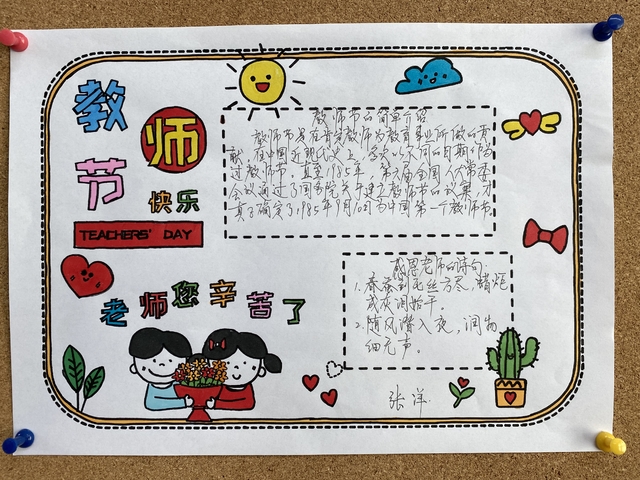 教师节
快乐
TEACHERS' DAY
老师您辛苦了
教师节的简单介绍
教师节旨在肯定教师为教育事业所做的贡
献。在中国近现代史上，多次以不同的日期作为
过教师节。直至1985年，第六届全国人大常委
会议通过了国务院关于建立教师节的议案，才
真正确定了1985年9月10日为中国第一个教师节。
感恩老师的诗句
1. 春蚕到死丝方尽，蜡炬
成灰泪始干。
2. 随风潜入夜，润物
细无声。
张洋